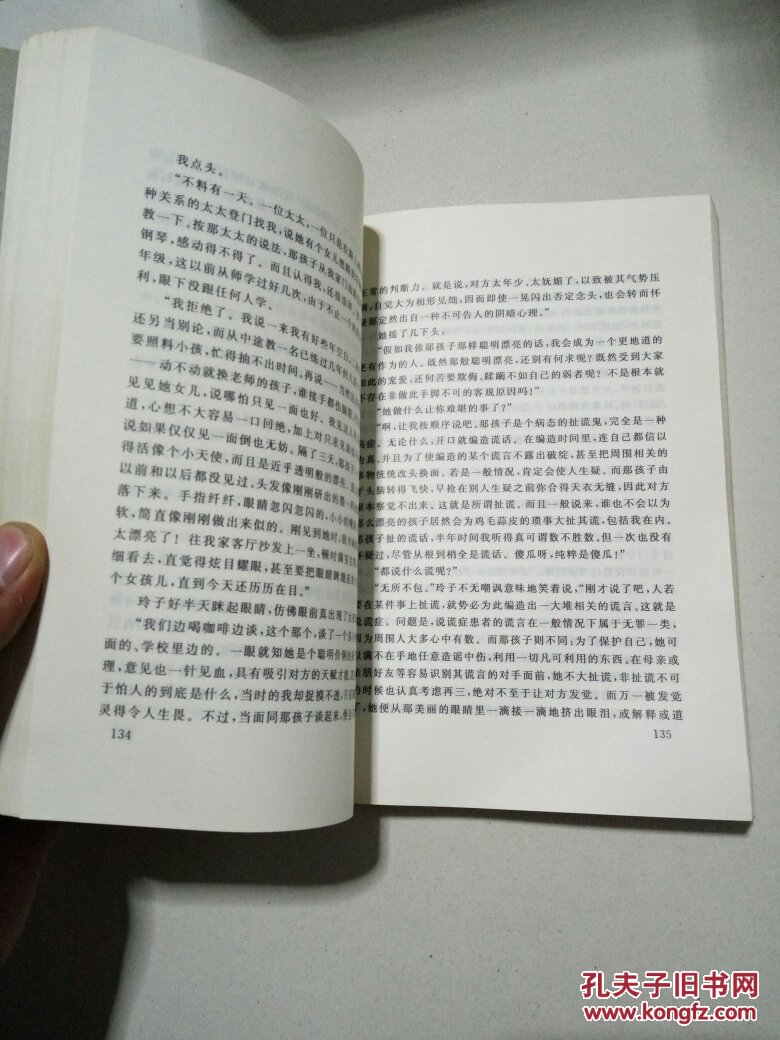 我点头。
“不料有一天。一位太太，一位只是
种关系的太太登门找我，说她有个女儿想跟
教一下。按那太太的说法，那孩子从我家门前
钢琴，感动得不得了。而且认得我，还
年级，这以前从师学过好几次，由于不止一个
利，眼下没跟任何人学。
“我拒绝了。我说一来我有好些年空白，二
还另当别论，而从中途教一名已练过几年的人
要照料小孩，忙得抽不出时间。再说——当然这
——动不动就换老师的孩子，谁接手都伤脑筋
见见她女儿，说哪怕只见一面也好。我见这人
道，心想不大容易一口回绝，加上对只求见面
说如果仅仅见一面倒也无妨。隔了三天，那孩
得活像个小天使，而且是近乎透明般的漂亮。
以前和以后都没见过。头发像刚刚研出的墨一
落下来。手指纤纤，眼睛忽闪忽闪的，小小
软，简直像刚刚做出来似的。刚见到她时，我
太漂亮了！往我家客厅沙发上一坐，顿时满室
细看去，直觉得炫目耀眼，甚至要把眼睛眯缝起
个女孩儿，直到今天还历历在目。”
玲子好半天眯起眼睛，仿佛眼前真出现了
“我们边喝咖啡边谈，这个那个，谈了一个多
面的、学校里边的。一眼就知她是个聪明伶俐的
理，意见也一针见血，具有吸引对方的天赋才能，
于怕人的到底是什么，当时的我却捉摸不透，只
灵得令人生畏。不过，当面同那孩子谈起来，便
134
正常的判断力。就是说，对方太年少、太妩媚了，以致被其气势压
倒，自觉大为相形见绌，因而即使一晃闪出否定念头，也会转而怀
疑那定然出自一种不可告人的阴暗心理。”
她摇了几下头：
“假如我像那孩子那样聪明漂亮的话，我会成为一个更地道的
更有作为的人。既然那般聪明漂亮，还别有何求呢？既然受到大家
如此的宠爱，还何苦要欺侮、蹂躏不如自己的弱者呢？不是根本就
不存在非做此手脚不可的客观原因吗！”
“她做什么让你难堪的事了？”
“啊，让我按顺序说吧。那孩子是个病态的扯谎鬼，完全是一种
病症。无论什么，开口就编造谎话。在编造时间里，连自己都信以
为真。并且为了使编造的某个谎言不露出破绽，甚至把周围相关的
事物统统改头换面。若是一般情况，肯定会使人生疑。而那孩子由
于头脑转得飞快，早抢在别人生疑之前弥合得天衣无缝，因此对方
根本察觉不出来。这就是所谓扯谎。而且一般说来，谁也不会以为
那么漂亮的孩子居然会为鸡毛蒜皮的琐事大扯其谎，包括我在内。
那孩子扯的谎话，半年时间我听得真可谓数不胜数。但一次也没有
怀疑过，尽管从根到梢全是谎话。傻瓜呀，纯粹是傻瓜！”
“都说什么谎呢？”
“无所不包。”玲子不无嘲讽意味地笑着说，“刚才说了吧，人若
要在某件事上扯谎，就势必为此编造出一大堆相关的谎言。这就是
说谎症。问题是，说谎症患者的谎言在一般情况下属于无罪一类，
因为周围人大多心中有数。而那孩子则不同；为了保护自己，她可
以满不在乎地任意造谣中伤，利用一切凡可利用的东西。在母亲或
亲朋好友等容易识别其谎言的对手面前，她不大扯谎，非扯谎不可
的时候也认真考虑再三，绝对不至于让对方发觉。而万一被发觉
了，她便从那美丽的眼睛里一滴接一滴地挤出眼泪，或解释或道
135
孔夫子旧书网
www.kongfz.com